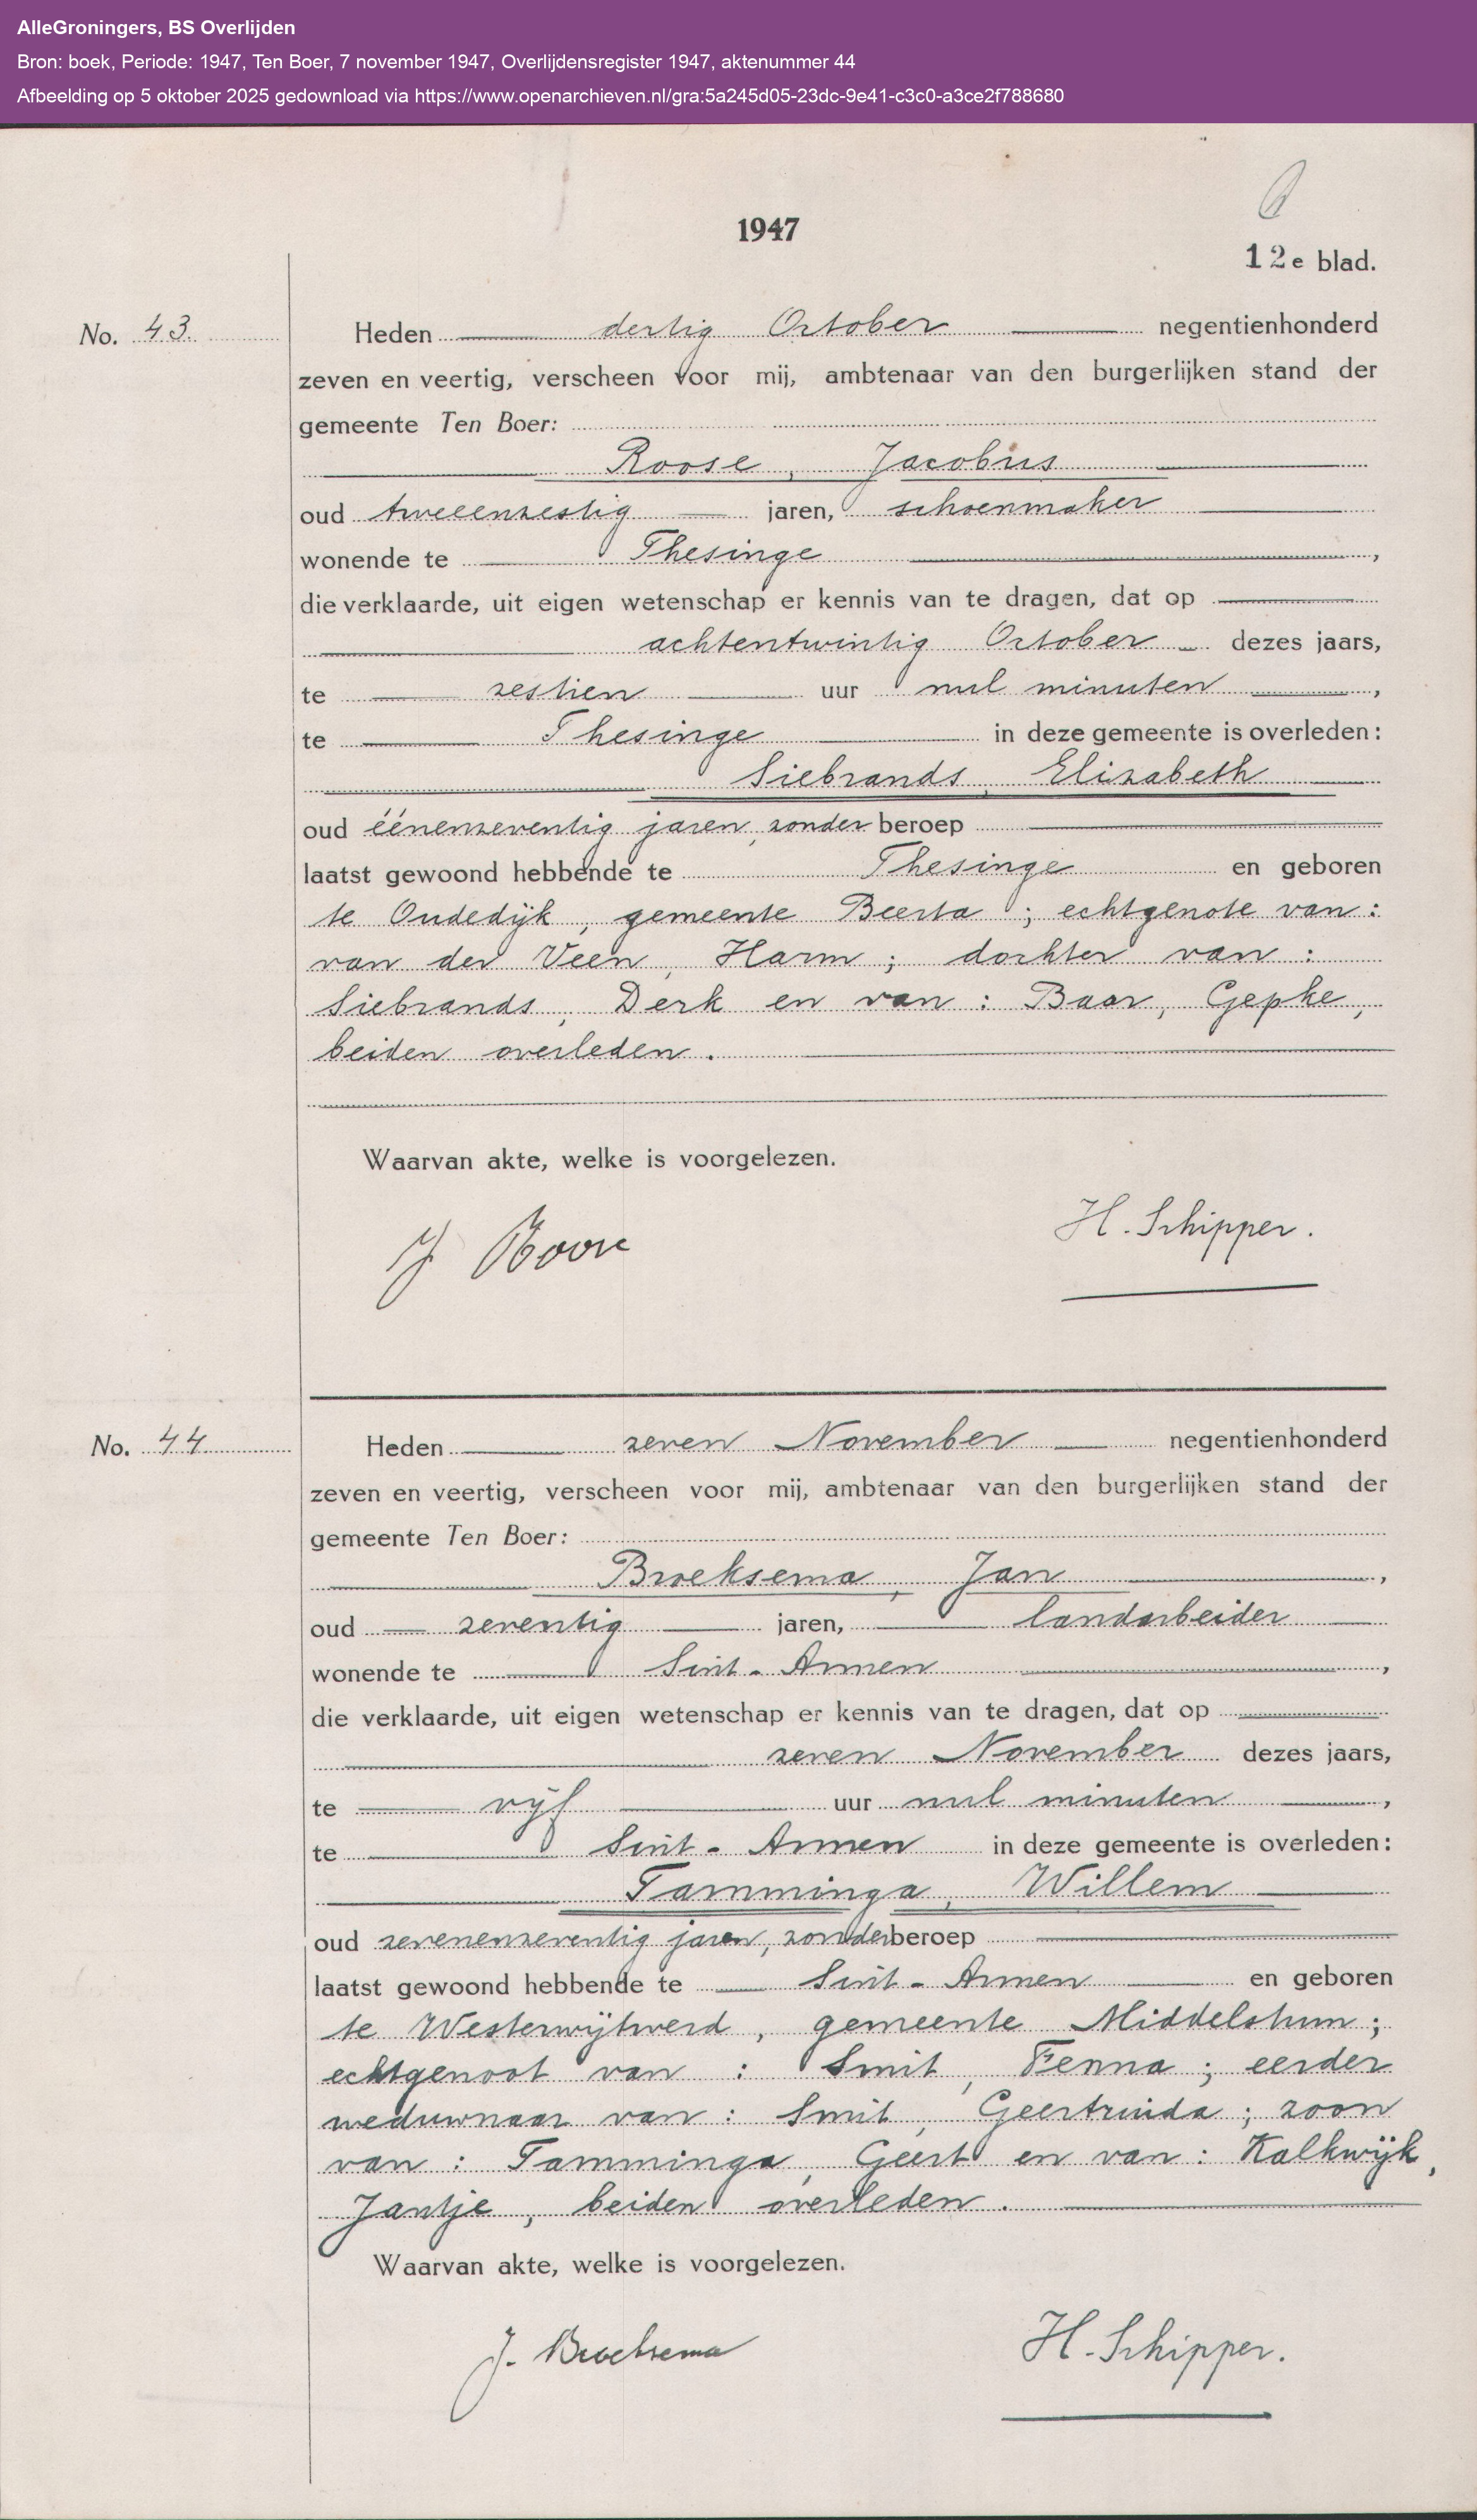 AlleGroningers, BS Overlijden
Bron: boek, Periode: 1947, Ten Boer, 7 november 1947, Overlijdensregister 1947, aktenummer 44
Afbeelding op 5 oktober 2025 gedownload via https://www.openarchieven.nl/gra:5a245d05-23dc-9e41-c3c0-a3ce2f788680
1947
12e blad.
No. 43.
Heden dertig October negentienhonderd
zeven en veertig, verscheen voor mij, ambtenaar van den burgerlijken stand der
gemeente Ten Boer:
Roose, Jacobus
oud tweeenzestig jaren, schoenmaker
wonende te Thesinge,
die verklaarde, uit eigen wetenschap er kennis van te dragen, dat op
achtentwintig October dezes jaars,
te zestien uur nul minuten,
te Thesinge in deze gemeente is overleden:
Siebrands, Elizabeth
oud éénenzeventig jaren, zonder beroep
laatst gewoond hebbende te Thesinge en geboren
te Oudedijk, gemeente Beerta; echtgenote van:
van der Veen, Harm; dochter van:
Siebrands, Derk en van: Baar, Gepke,
beiden overleden.
Waarvan akte, welke is voorgelezen.
J Roose
H. Schipper.
No. 44
Heden zeven November negentienhonderd
zeven en veertig, verscheen voor mij, ambtenaar van den burgerlijken stand der
gemeente Ten Boer:
Broeksema, Jan,
oud zeventig jaren, landarbeider
wonende te Sint-Annen,
die verklaarde, uit eigen wetenschap er kennis van te dragen, dat op
zeven November dezes jaars,
te vijf uur nul minuten,
te Sint-Annen in deze gemeente is overleden:
Tamminga, Willem
oud zevenenzeventig jaren, zonder beroep
laatst gewoond hebbende te Sint-Annen en geboren
te Westerwijtwerd, gemeente Middelstum;
echtgenoot van: Smit, Fenna; eerder
weduwnaar van: Smit, Geertruida; zoon
van: Tamminga, Geert en van: Kalkwijk,
Jantje, beiden overleden.
Waarvan akte, welke is voorgelezen.
J. Broeksema
H. Schipper.